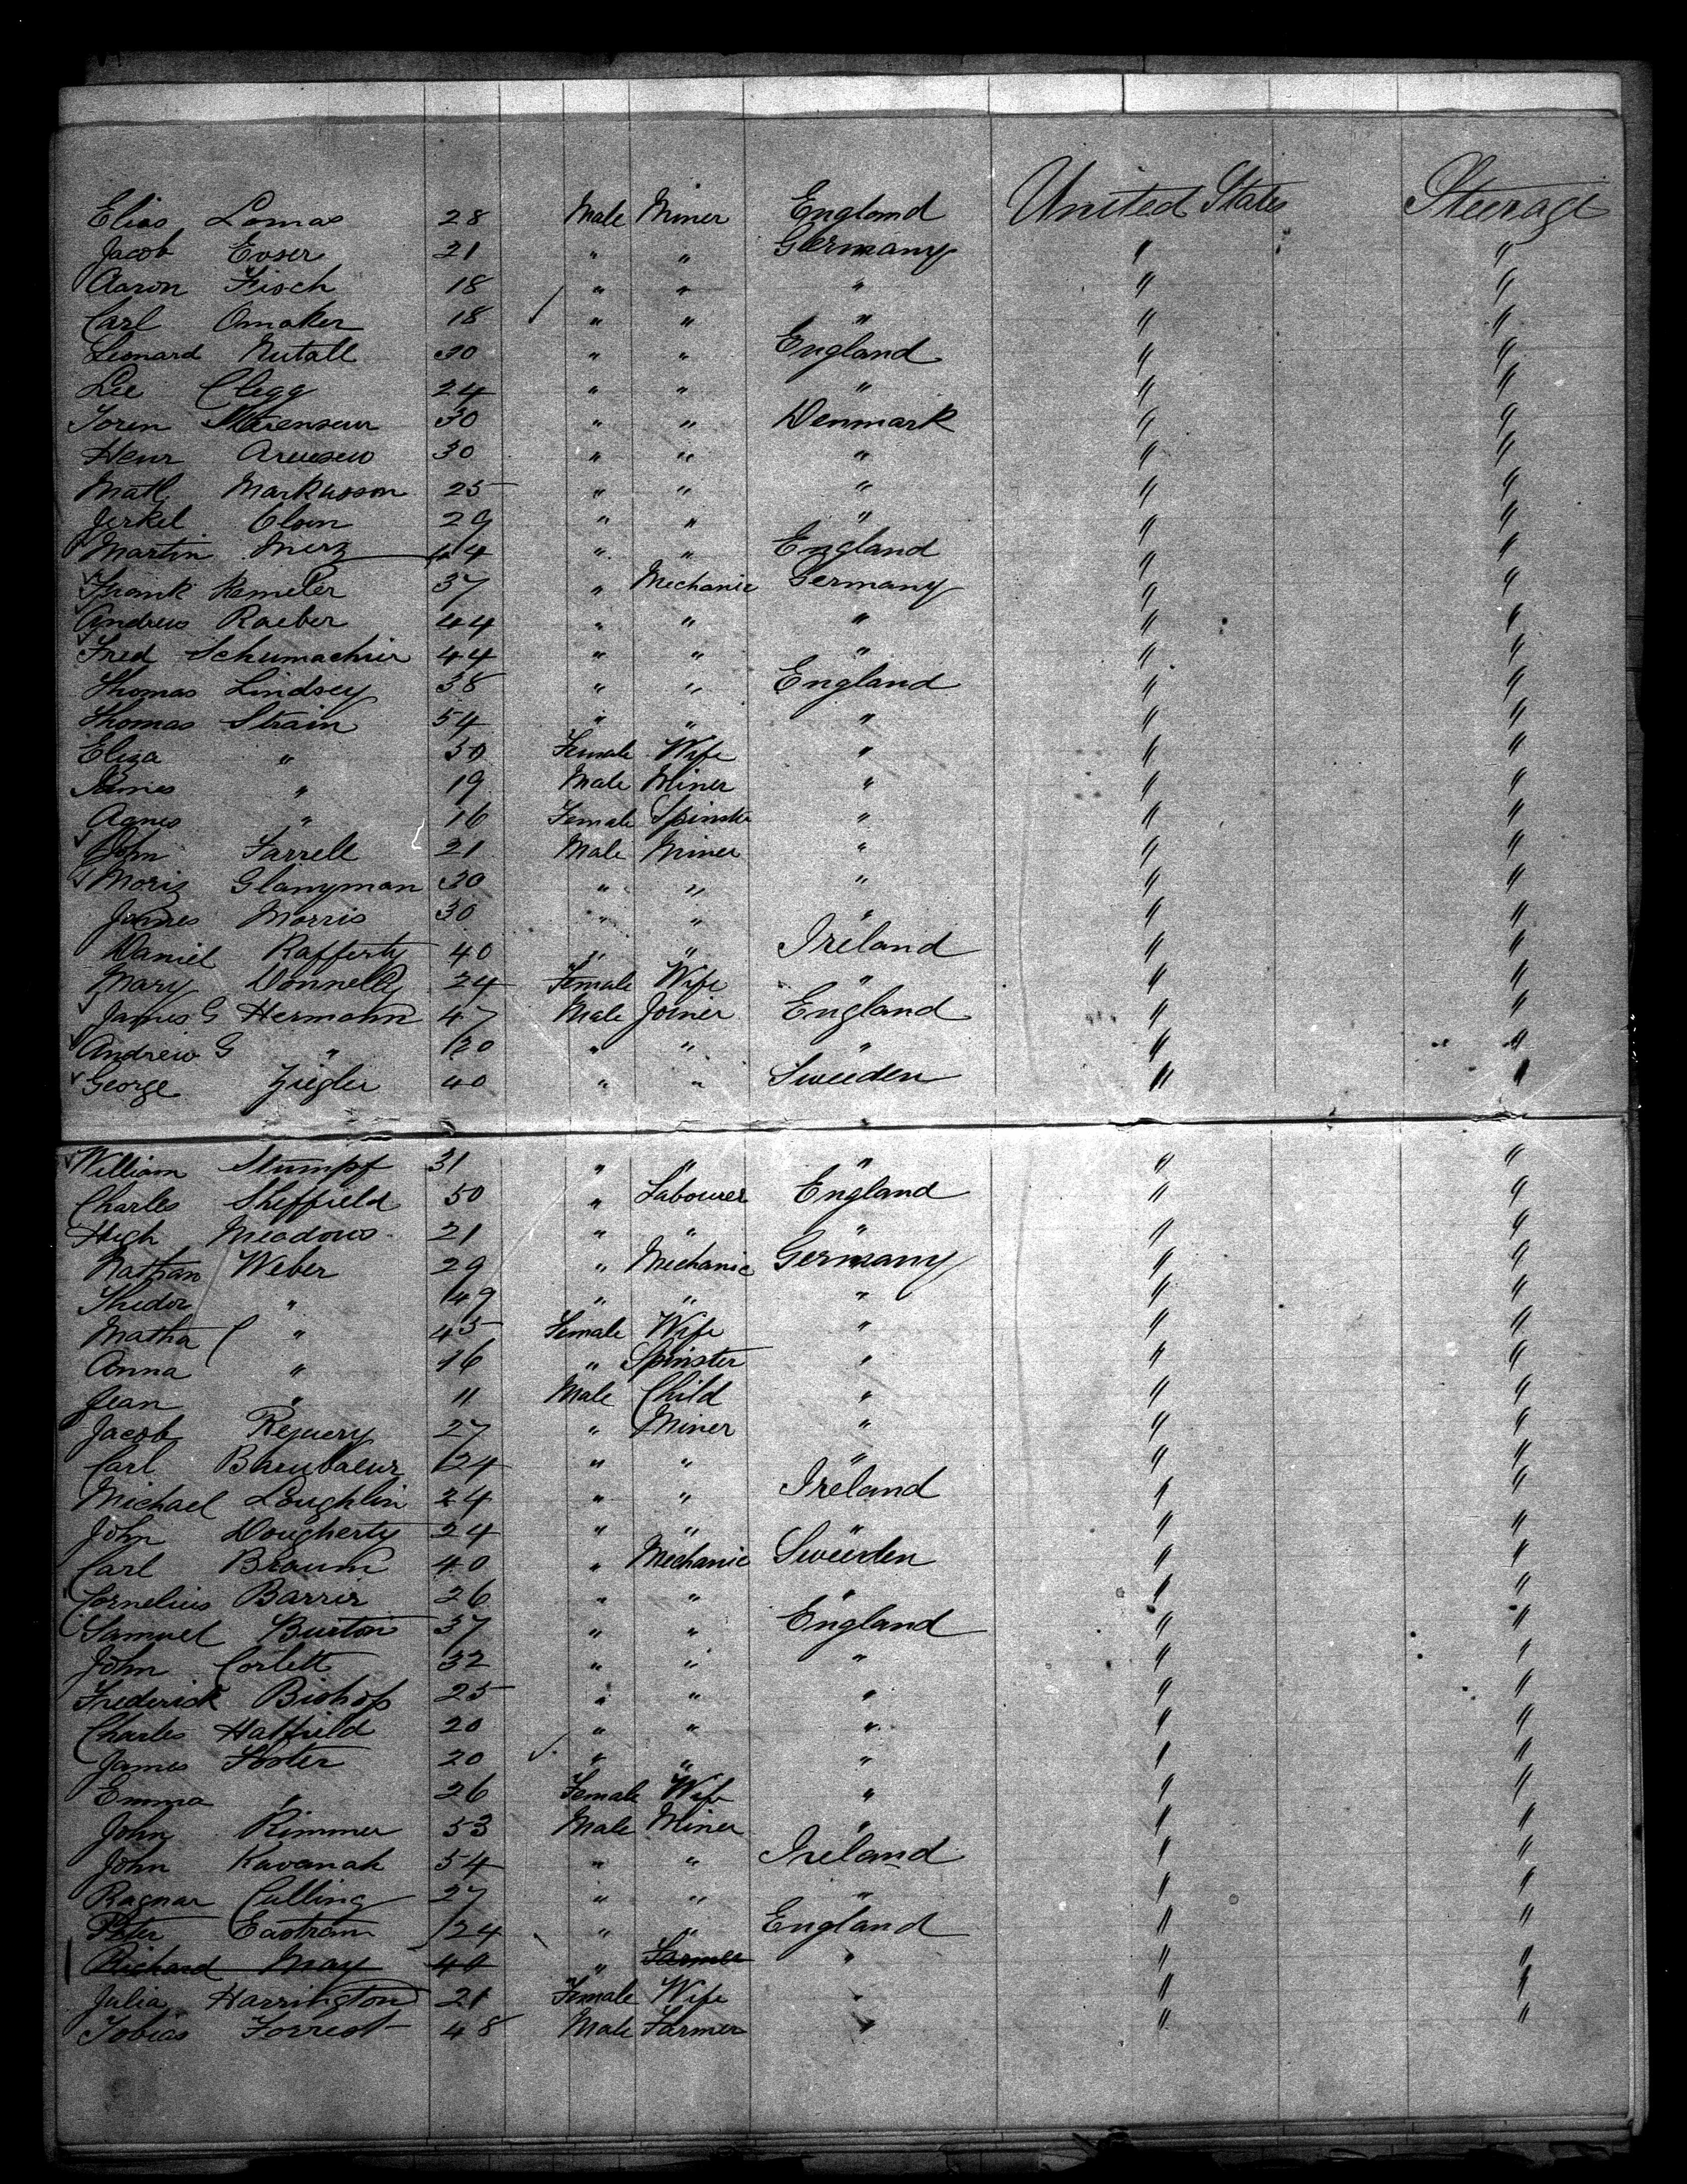 Elias Lomas 28 Male Miner England United States Steerage
Jacob Evser 21 " " Germany " "
Aaron Fisch 18 " " " " "
Carl Omaker 18 " " " " "
Leonard Nutall 30 " " England " "
Lee Clegg 24 " " " " "
Soren 30 " " Denmark " "
Henr 30 " " " " "
Matt Markusson 25 " " " " "
Jerkel Cloin 29 " " " " "
Martin Merz 44 " " England " "
Frank 37 " Mechanic Germany " "
Andrew Raeber 44 " " " " "
Fred Schumachier 44 " " " " "
Thomas Lindsey 38 " " England " "
Thomas Strain 54 " " " " "
Eliza " 50 Female Wife " " "
James " 19 Male Miner " " "
Agnes " 16 Female Spinster " " "
John Farrell 21 Male Miner " " "
Moriz Glanyman 30 " " " " "
James Morris 30 " " " " "
Daniel Rafferty 40 " " Ireland " "
Mary Donnelly 24 Female Wife " " "
James G Hermann 47 Male Joiner England " "
Andrew G " 20 " " " " "
George Ziegler 40 " " Sweeden " "
William Stumpf 31 " " " " "
Charles Sheffield 50 " Labourer England " "
Hugh Meadows 21 " " " " "
Nathan Weber 29 " Mechanic Germany " "
Thedor " 49 " " " " "
Matha " 45 Female Wife " " "
Anna " 16 " Spinster " " "
Jean " 11 Male Child " " "
Jacob 27 " Miner " " "
Carl 24 " " " " "
Michael Loughlin 24 " " Ireland " "
John Dougherty 24 " " " " "
Carl Broum 40 " Mechanic Sweeden " "
Cornelius Barrir 26 " " " " "
Samuel Burton 37 " " England " "
John Corlett 32 " " " " "
Frederick Bishop 25 " " " " "
Charles Hatfield 20 " " " " "
James Foster 20 " " " " "
Emma " 26 Female Wife " " "
John Rimmer 53 Male Miner " " "
John Kavanah 54 " " Ireland " "
Ragnar Culling 27 " " " " "
Peter Eastram 24 " " England " "
Richard May 40 " Farmer " " "
Julia Harrington 21 Female Wife " " "
Tobias Forrest 48 Male Farmer " " "